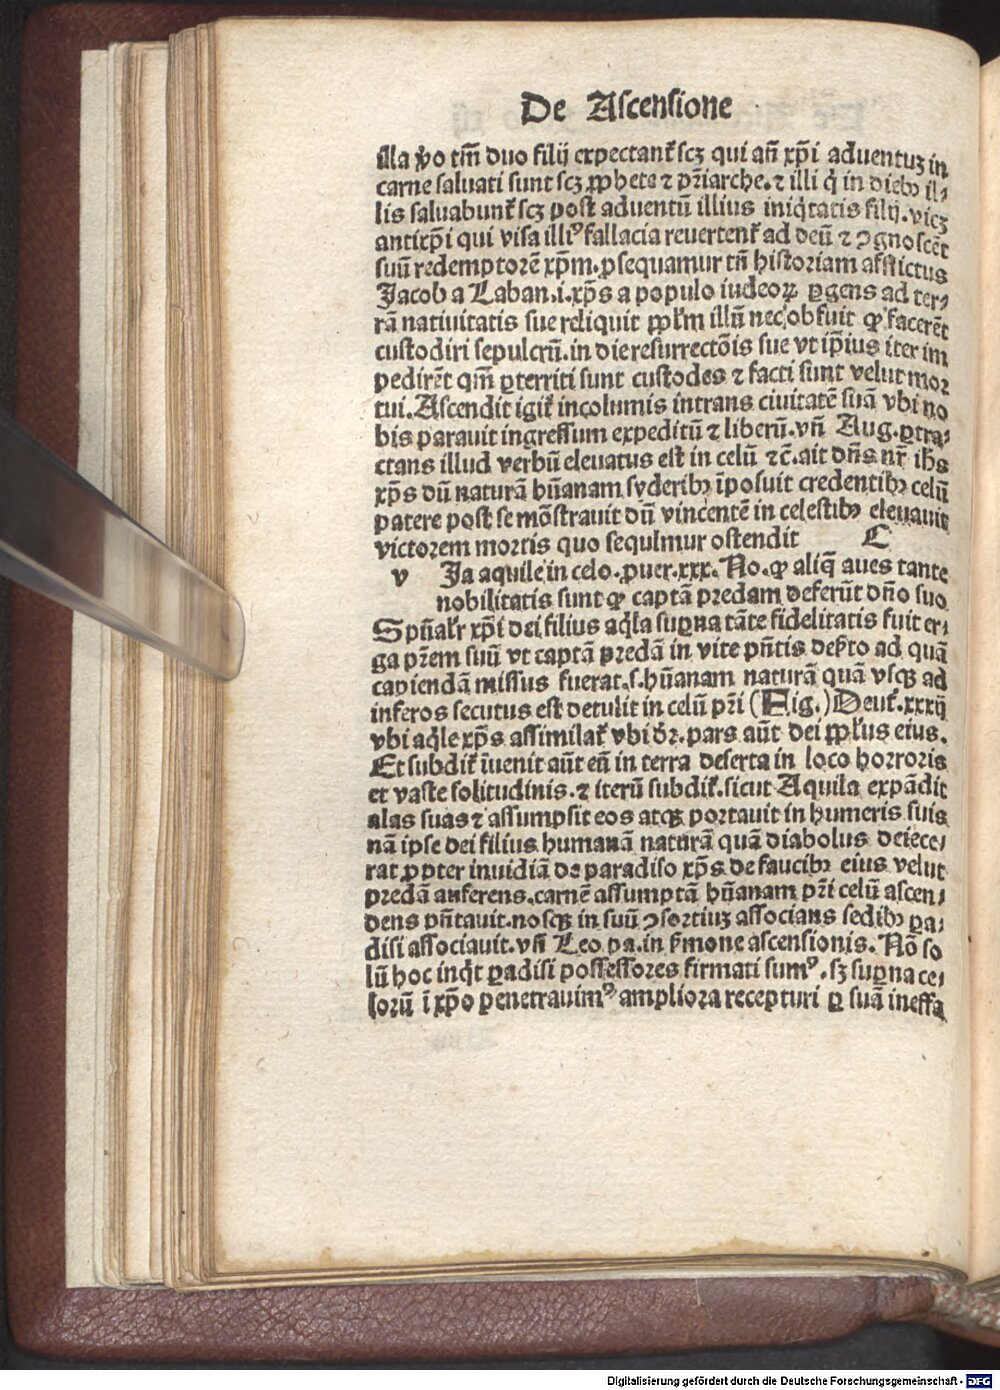 De Ascensione
illa v̾o tm̄ duo filij expectant᷑ scꝫ qui an̄ xp̄i aduentuꝫ in
carne saluati sunt scꝫ ꝓphete ⁊ pr̄iarche. ⁊ illi q̇ in diebꝫ il⸗
lis saluabunt᷑ scꝫ post aduentū illius iniq̇tatis filij. vicꝫ
antixp̄i qui visa illiꝰ fallacia reuertent᷑ ad deū ⁊ ꝯgnoscēt
suū redemptorē xp̄m. ꝓsequamur tn̄ historiam afflictus
Jacob a Laban .i. xp̄s a populo iudeoꝝ ꝑgens ad ter⸗
rā natiuitatis sue reliquit pp̄l'm illū nec obfuit ꝙ facerēt
custodiri sepulcrū. in die resurrectōis sue vt ip̄ius iter im
pedirēt qm̄ ꝑterriti sunt custodes ⁊ facti sunt velut mor
tui. Ascendit igit᷑ incolumis intrans ciuitatē suā vbi no
bis parauit ingressum expeditū ⁊ liberū. vn̄ Aug. ꝑtra⸗
ctans illud verbū eleuatus est in celū ⁊c̄. ait dn̄s nr̄ ih̄s
xp̄s dū naturā hūanam syderibꝫ īposuit credentibꝫ celū
patere post se mōstrauit dū vincentē in celestibꝫ eleuauit
victorem mortis quo sequimur ostendit C
v Ja aquile in celo. ꝓuer. xxx. No. ꝙ aliq̄ aues tante
nobilitatis sunt ꝙ captā predam deferūt dn̄o suo
Sp̄ual'r xp̄i dei filius aq̇la suꝑna tāte fidelitatis fuit er⸗
ga pr̄em suū vt captā predā in vite pn̄tis dep̄to ad quā
capiendā missus fuerat .s. hūanam naturā quā vsqꝫ ad
inferos secutus est detulit in celū pr̄i (Fig.) Deut᷑. xxxij
vbi aq̇le xp̄s assimilat᷑ vbi dr̄. pars aūt dei pp̄l'us eius.
Et subdit᷑ īuenit aūt eū in terra deserta in loco horroris
et vaste solitudinis. ⁊ iterū subdit᷑. sicut Aquila expādit
alas suas ⁊ assumpsit eos atqꝫ portauit in humeris suis
nā ipse dei filius humanā naturā quā diabolus deiece⸗
rat ꝓpter inuidiā de paradiso xp̄s de faucibꝫ eius velut
predā auferens. carnē assumptā hūanam pr̄i celū ascen⸗
dens pn̄tauit. nosqꝫ in suū ꝯsortiuꝫ associans sedibꝫ ꝑa⸗
disi associauit. vn̄ Leo pa. in s̄mone ascensionis. Nō so
lū hoc inq̇t ꝑadisi possessores firmati sumꝰ. sꝫ suꝑna ce⸗
lorū ī xp̄o penetrauimꝰ ampliora recepturi ꝑ suā ineffa
Digitalisierung gefördert durch die Deutsche Forschungsgemeinschaft - DFG